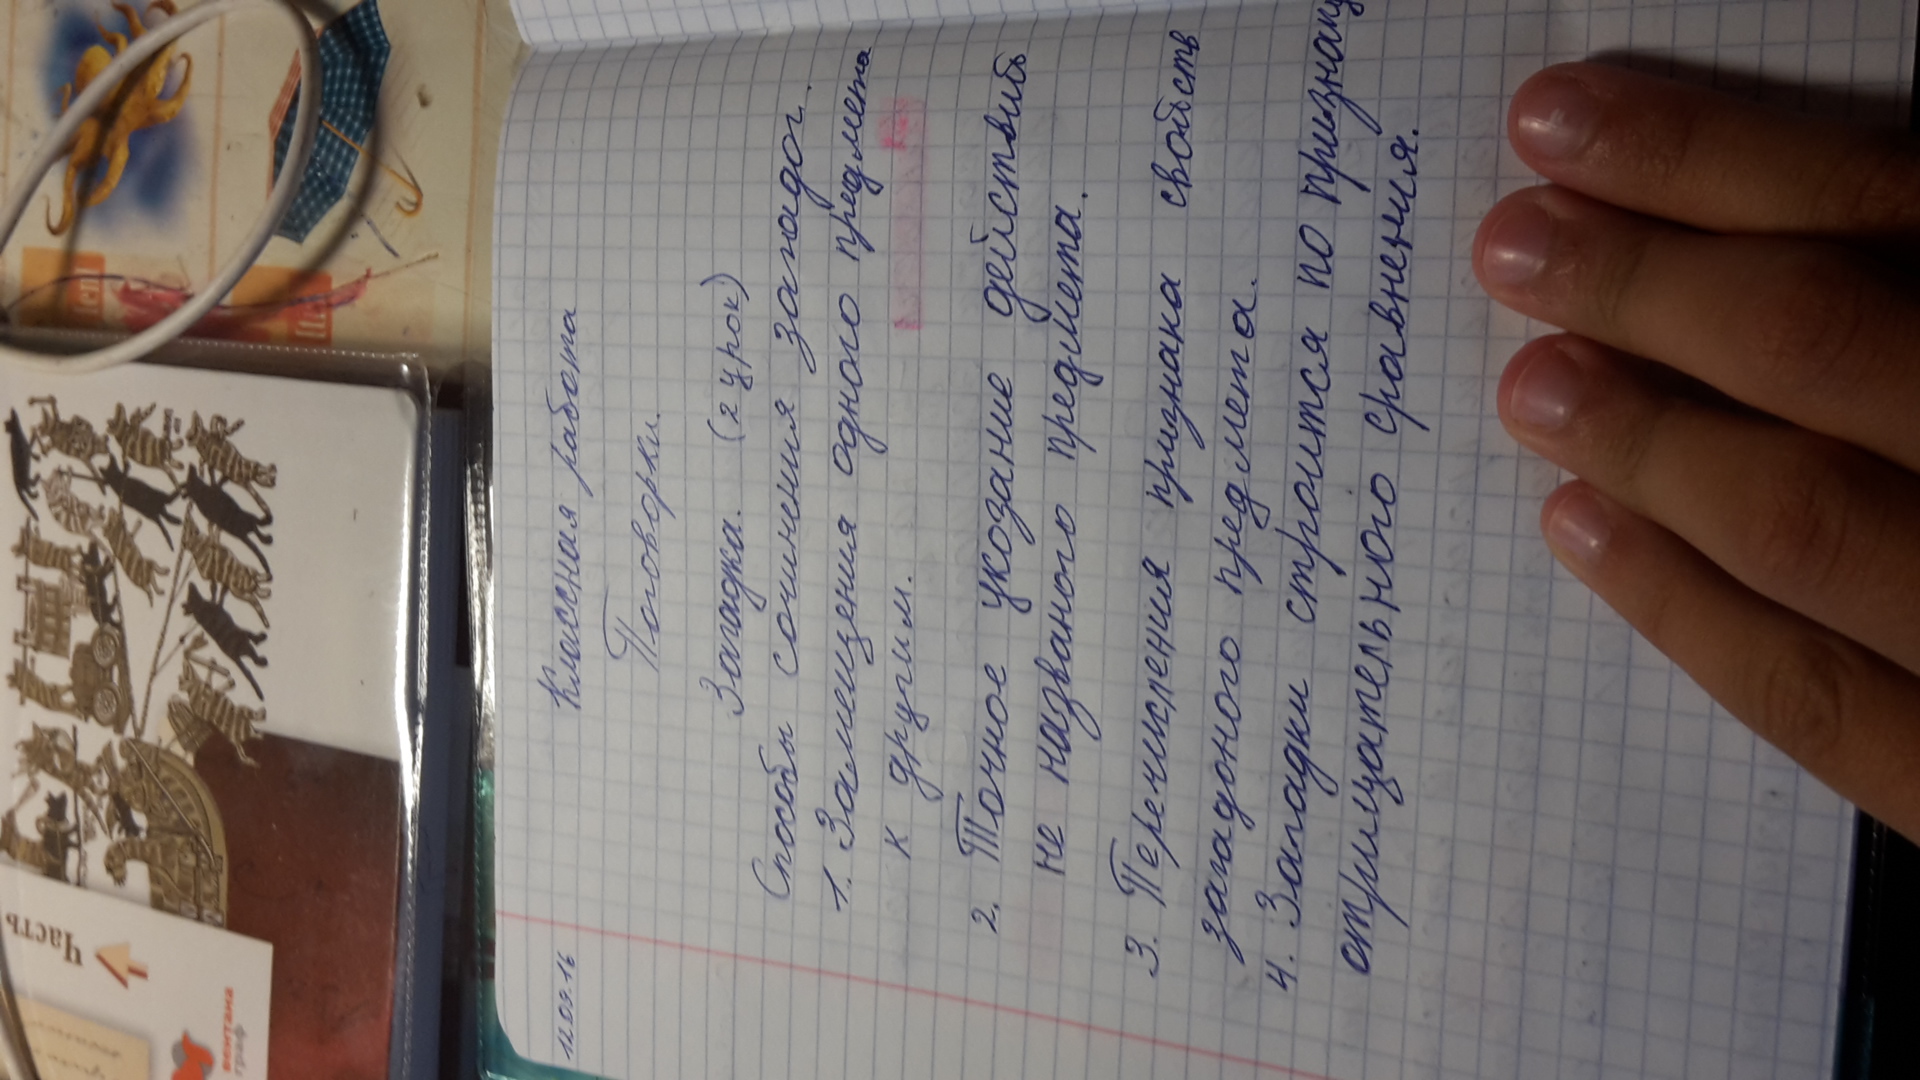 12.09.16
Классная работа
Поговорки.
Загадка. (2 урок)
Способы сочинения загадог.
1. Замещения одного предмета
к другим.
2. Точное укозание действий
не названого предмета.
3. Перечисления признака свойств
загадоного предмета.
4. Загадки строится по признаку
отрицательного сравнения.
Часть
вентана
граф